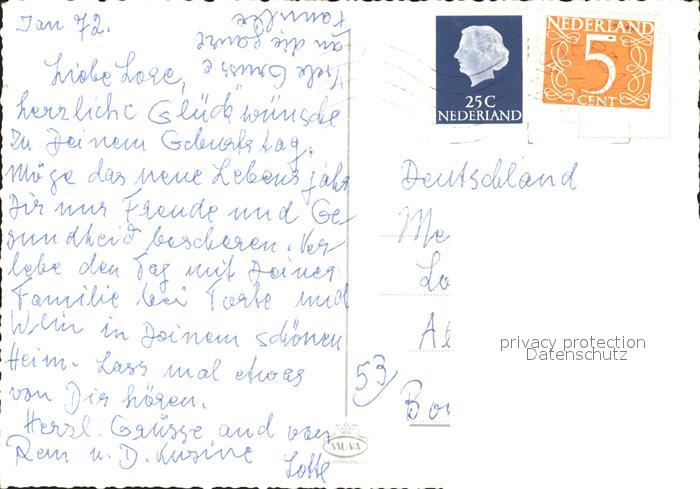 Jan 72.
Viele Grüsse
an die ganze
Familie
Liebe Lore,
herzliche Glückwünsche
zu Deinem Geburtstag.
Möge das neue Lebensjahr
Dir nur Freude und Ge-
sundheid bescheren. Ver
lebe den Tag mit Deiner
Familie bei Torte und
Wein in Deinem schönen
Heim. Lass mal etwas
von Dir hören.
Herzl. Grüsse auch von
Rem u. D. Kusine
Lotte
25C
NEDERLAND
NEDERLAND
5
CENT
Deutschland
53
privacy protection
Datenschutz